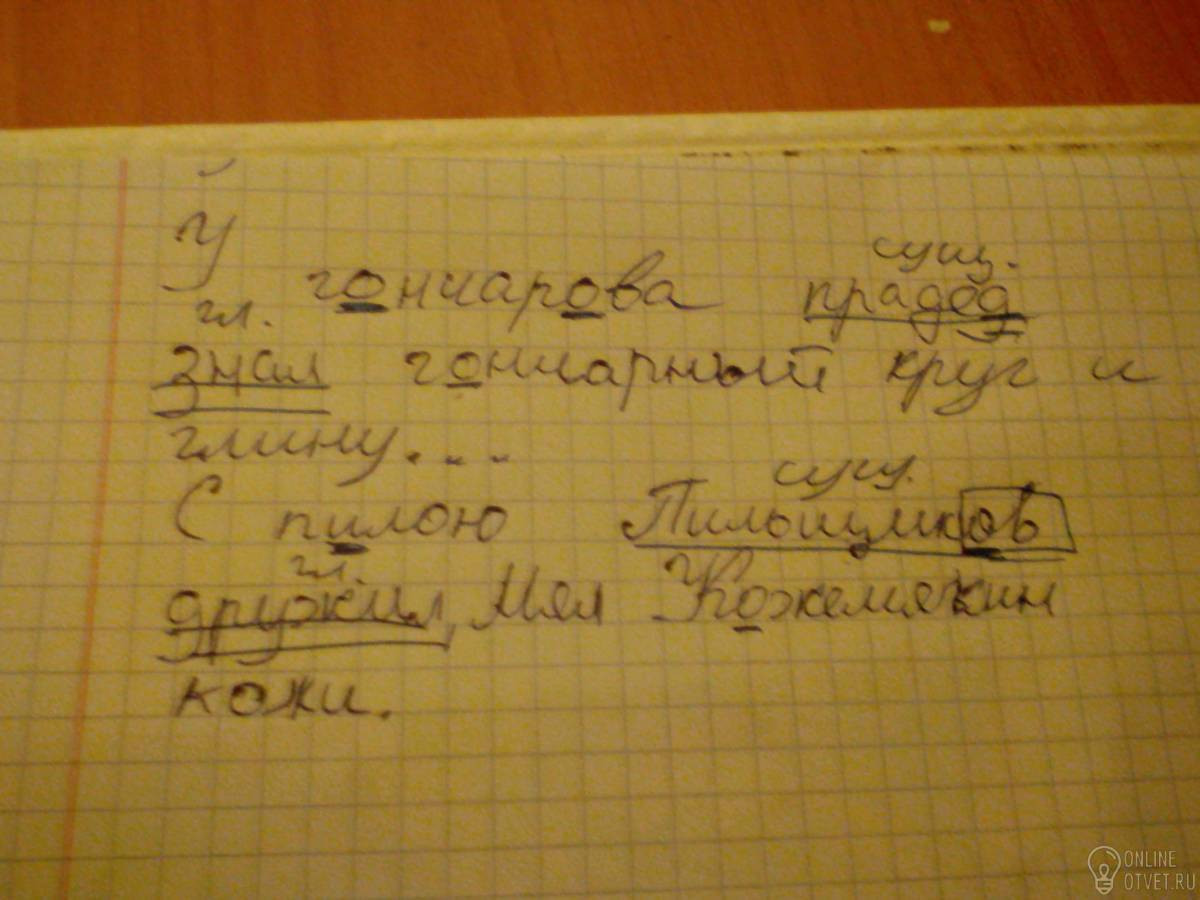 У
сущ.
гончарова прадед
гл.
знал гончарный круг и
глину...
сущ.
С пилою Пильщиков
гл.
дружил, Мял Кожемякин
кожи.
ONLINE
OTVET.RU